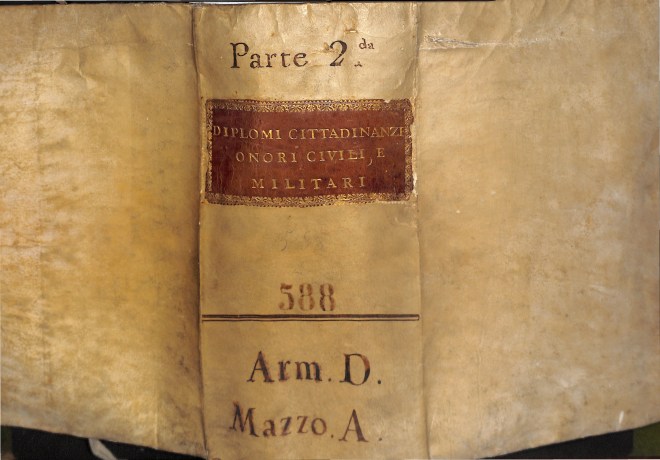 Parte 2.da
DIPLOMI CITTADINANZE
ONORI CIVILI, E
MILITARI
588
Arm. D.
Mazzo. A.